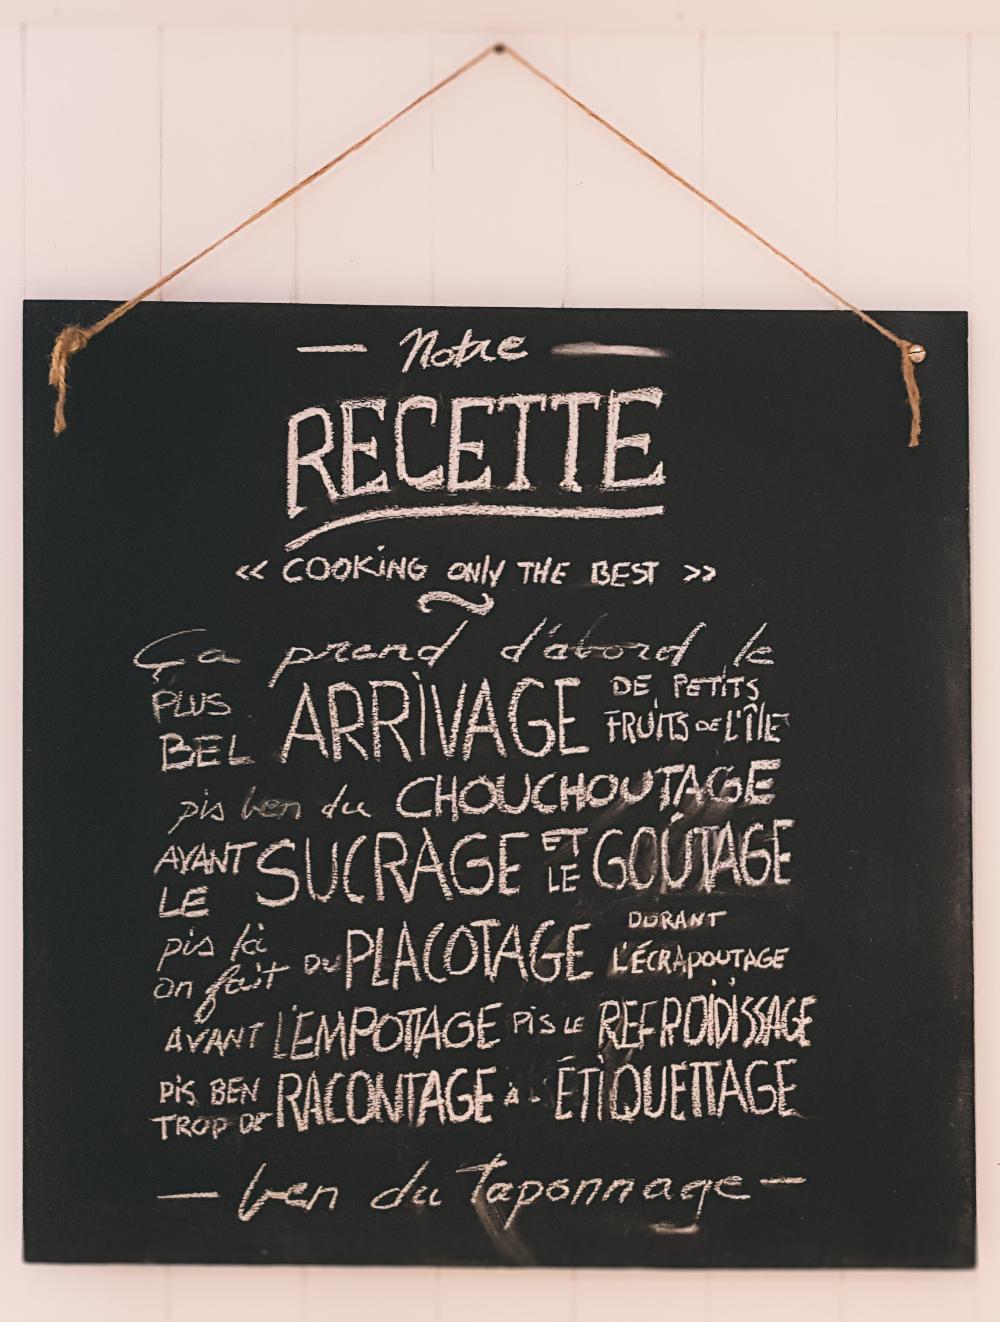 — Notre —
RECETTE
<< COOKING ONLY THE BEST >>
Ça prend d'abord le
PLUS BEL ARRIVAGE DE PETITS FRUITS DE L'ÎLE
pis ben du CHOUCHOUTAGE
AVANT LE SUCRAGE ET LE GOÛTAGE
pis là on fait DU PLACOTAGE DURANT L'ÉCRAPOUTAGE
AVANT L'EMPOTAGE PIS LE REFROIDISSAGE
PIS BEN TROP DE RACONTAGE À L'ÉTIQUETTAGE
— ben du Taponnage —